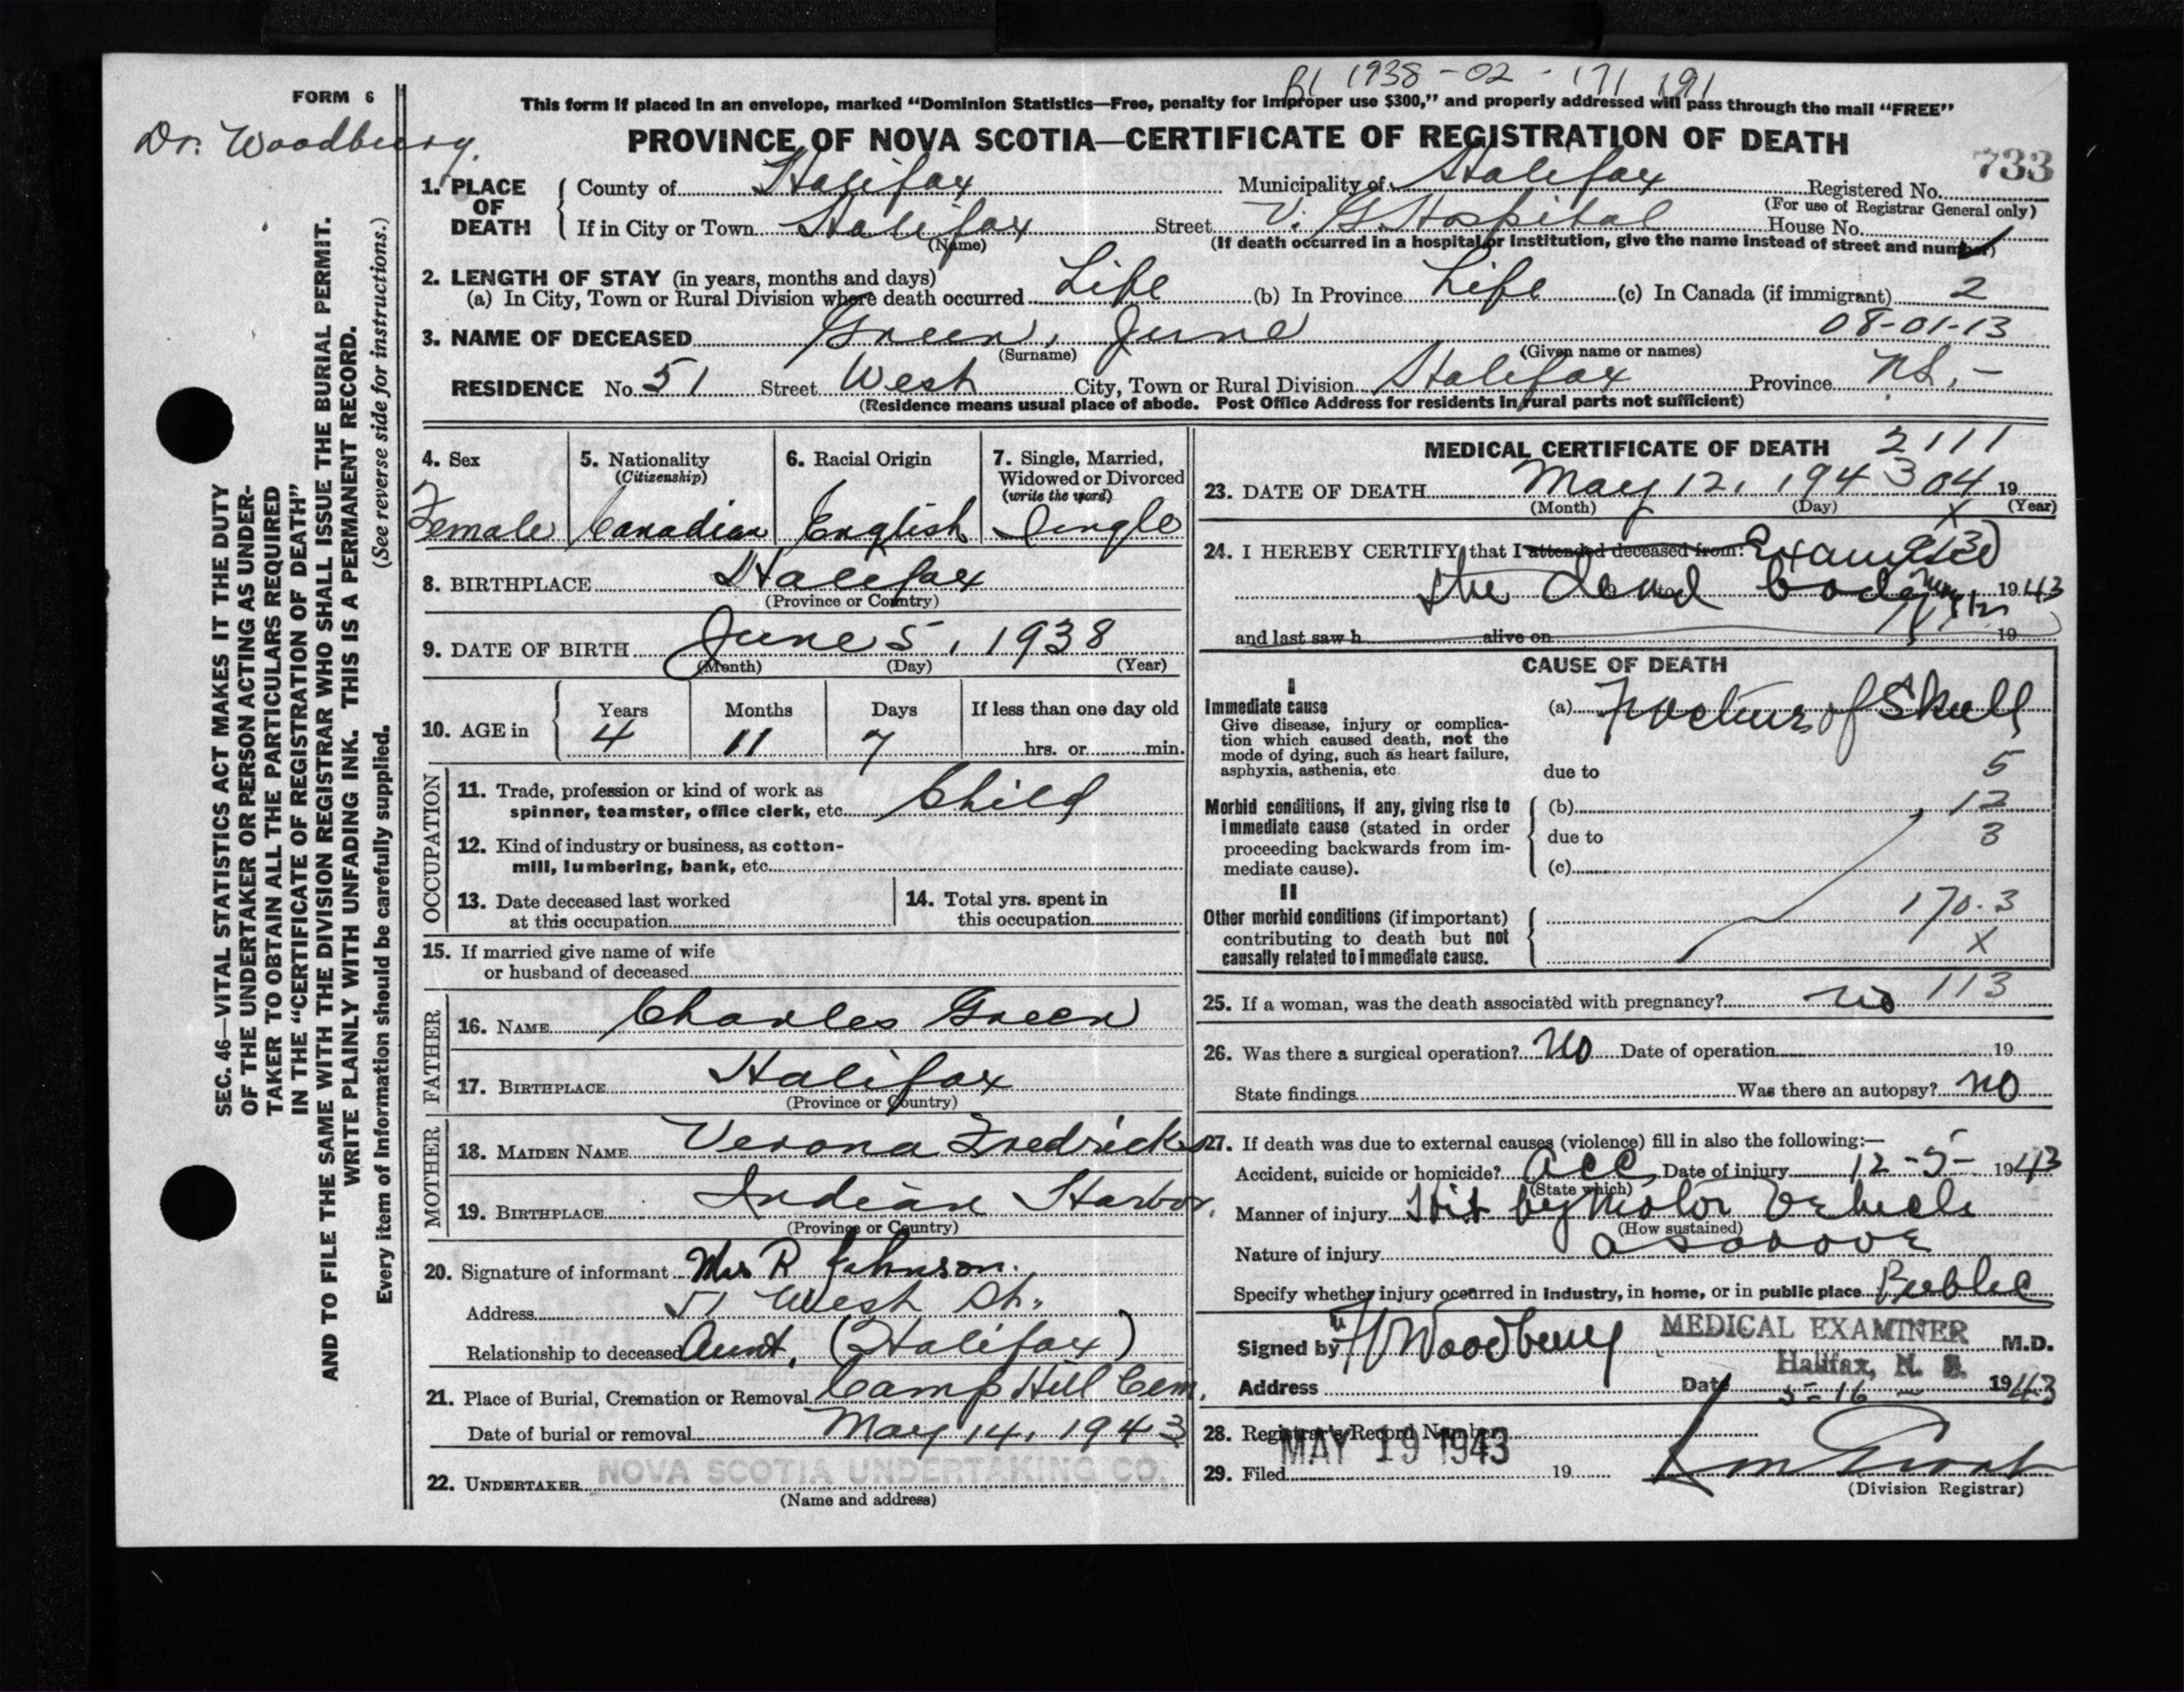 Bl 1938-02-171191
FORM 6
This form if placed in an envelope, marked “Dominion Statistics—Free, penalty for improper use $300,” and properly addressed will pass through the mail “FREE”
Dr. Woodbury.
PROVINCE OF NOVA SCOTIA—CERTIFICATE OF REGISTRATION OF DEATH
733
1. PLACE OF DEATH
County of Halifax Municipality of Halifax Registered No.
(For use of Registrar General only)
If in City or Town Halifax Street V. G. Hospital House No.
(Name) (If death occurred in a hospital or institution, give the name instead of street and number)
2. LENGTH OF STAY (in years, months and days)
(a) In City, Town or Rural Division where death occurred Life (b) In Province Life (c) In Canada (if immigrant) 2
08-01-13
3. NAME OF DECEASED Green, June
(Surname) (Given name or names)
RESIDENCE No. 51 Street West City, Town or Rural Division Halifax Province N.S.
(Residence means usual place of abode. Post Office Address for residents in rural parts not sufficient)
4. Sex
Female
5. Nationality
(Citizenship)
Canadian
6. Racial Origin
English
7. Single, Married,
Widowed or Divorced
(write the word)
Single
8. BIRTHPLACE Halifax
(Province or Country)
9. DATE OF BIRTH June 5, 1938
(Month) (Day) (Year)
10. AGE in
Years Months Days If less than one day old
4 11 7 hrs. or min.
OCCUPATION
11. Trade, profession or kind of work as
spinner, teamster, office clerk, etc. Child
12. Kind of industry or business, as cotton-
mill, lumbering, bank, etc.
13. Date deceased last worked
at this occupation
14. Total yrs. spent in
this occupation
15. If married give name of wife
or husband of deceased
FATHER
16. NAME Charles Green
17. BIRTHPLACE Halifax
(Province or Country)
MOTHER
18. MAIDEN NAME Verona Fredricks
19. BIRTHPLACE Indian Harbor.
(Province or Country)
20. Signature of informant Mrs R Johnson.
Address 51 West St.
Relationship to deceased Aunt. (Halifax)
21. Place of Burial, Cremation or Removal Camp Hill Cem.
Date of burial or removal May 14, 1943
22. UNDERTAKER NOVA SCOTIA UNDERTAKING CO.
(Name and address)
MEDICAL CERTIFICATE OF DEATH 2111
23. DATE OF DEATH May 12, 1943 04 19
(Month) (Day) (Year)
X
24. I HEREBY CERTIFY that I attended deceased from: Examined
the dead body 1943
and last saw h alive on 19
CAUSE OF DEATH
I
Immediate cause
Give disease, injury or complica-
tion which caused death, not the
mode of dying, such as heart failure,
asphyxia, asthenia, etc
(a) Fracture of Skull
due to 5
Morbid conditions, if any, giving rise to
immediate cause (stated in order
proceeding backwards from im-
mediate cause).
(b) 12
due to 3
(c)
II
Other morbid conditions (if important)
contributing to death but not
causally related to immediate cause.
170.3
X
25. If a woman, was the death associated with pregnancy? no 113
26. Was there a surgical operation? No Date of operation 19
State findings Was there an autopsy? no
27. If death was due to external causes (violence) fill in also the following:—
Accident, suicide or homicide? acc Date of injury 12-5- 1943
(State which)
Manner of injury Hit by Motor Vehicle
(How sustained)
Nature of injury as above
Specify whether injury occurred in industry, in home, or in public place Public
Signed by Woodbury MEDICAL EXAMINER M.D.
Halifax, N. S.
Address Date 5-16- 1943
28. Registrar's Record Number
MAY 19 1943
29. Filed 19
(Division Registrar)
SEC. 46—VITAL STATISTICS ACT MAKES IT THE DUTY
OF THE UNDERTAKER OR PERSON ACTING AS UNDER-
TAKER TO OBTAIN ALL THE PARTICULARS REQUIRED
IN THE “CERTIFICATE OF REGISTRATION OF DEATH”
AND TO FILE THE SAME WITH THE DIVISION REGISTRAR WHO SHALL ISSUE THE BURIAL PERMIT.
WRITE PLAINLY WITH UNFADING INK. THIS IS A PERMANENT RECORD.
Every item of information should be carefully supplied. (See reverse side for instructions.)